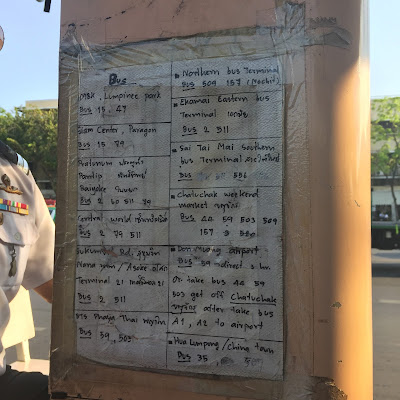 Bus
MBK, Lumpinee park
Bus 15, 47
Siam Center, Paragon
Bus 15 79
Pratunum ประตูน้ำ
Pantip พันธ์ทิพย์
Baiyoke ใบหยก
Bus 2 60 511 79
Central world
Bus 2 79 511
Sukumvit Rd. สุขุมวิท
Nana นานา / Asoke อโศก
Terminal 21 เทอร์มินอล 21
Bus 2, 511
BTS Phaya Thai พญาไท
Bus 59, 503
Northern bus Terminal
Bus 509 157 (Mochit)
Ekamai Eastern bus
Terminal เอกมัย
Bus 2 511
Sai Tai Mai Southern
bus Terminal สายใต้ใหม่
Bus 511 556
Chatuchak weekend
market จตุจักร
Bus 44 59 503 509
157
Don muang airport
Bus 59 direct 2 hr
Or take bus 44 59
503 get off Chatuchak
จตุจักร after take bus
A1, A2 to airport
Hua Lumpong / China town
Bus 35,